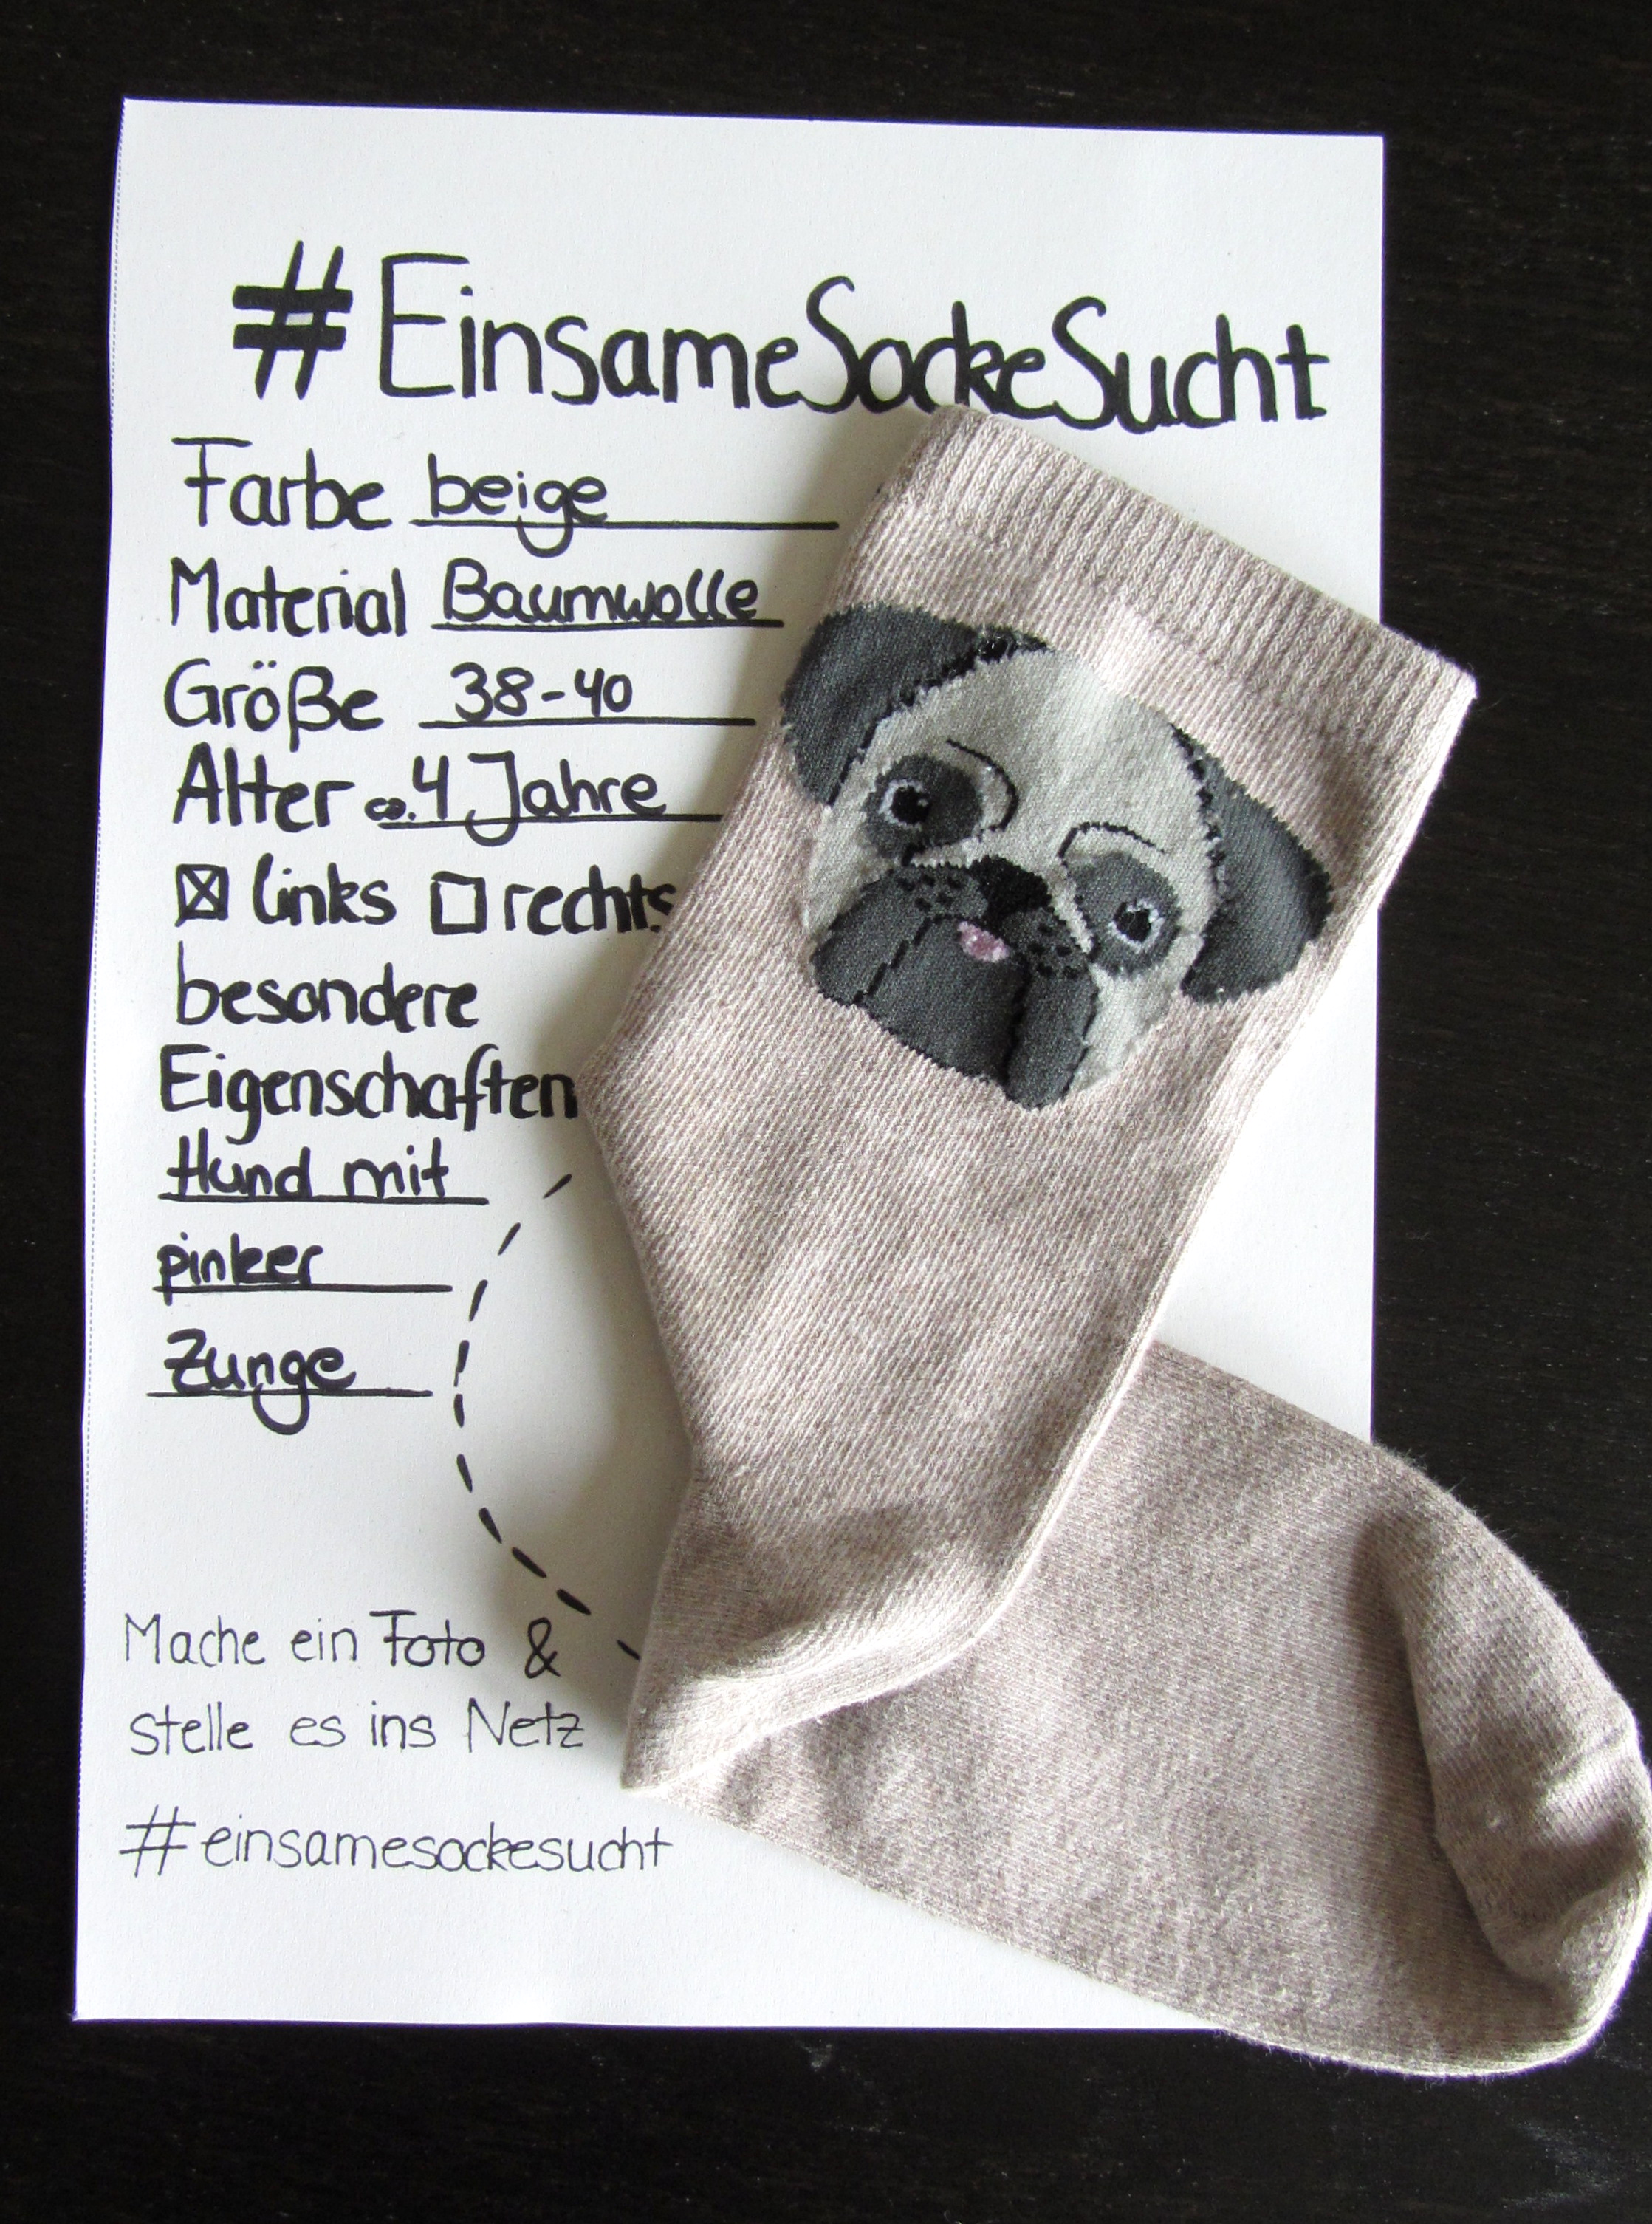 #EinsameSockeSucht
Farbe beige
Material Baumwolle
Größe 38-40
Alter ca. 4 Jahre
☒ links ☐ rechts
besondere
Eigenschaften
Hund mit
pinker
Zunge
Mache ein Foto &
stelle es ins Netz
#einsamesockesucht